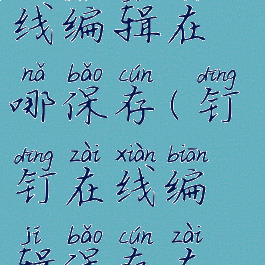 线编辑在
nǎ bǎo cún dīng
哪保存(钉
dīng zài xiàn biān
钉在线编
jí bǎo cún zài
辑保存在